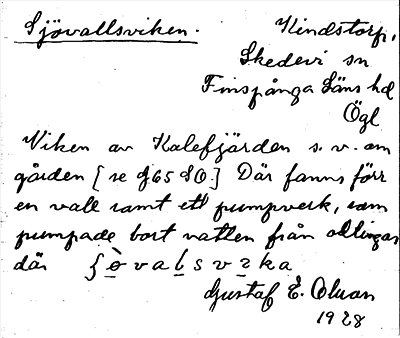 Sjövallsviken.
Kindstorp,
Skedevi sn
Finspånga Läns hd
Ögl
Viken av Kalefjärden s.v. om
gården [se g65 SO.] Där fanns förr
en vall samt ett pumpverk, som
pumpade bort vatten från odlingar
där
Gustaf E. Olson
1928